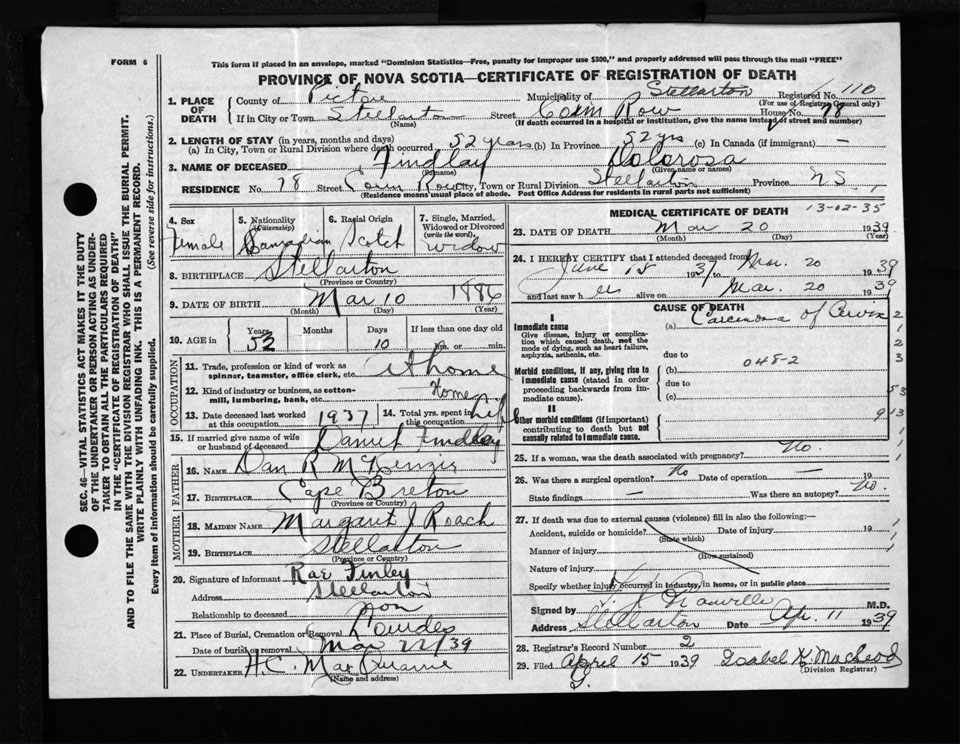 FORM 6
This form if placed in an envelope, marked "Dominion Statistics—Free, penalty for improper use $300," and properly addressed will pass through the mail "FREE"
PROVINCE OF NOVA SCOTIA—CERTIFICATE OF REGISTRATION OF DEATH
1. PLACE OF DEATH County of Pictou Municipality of Stellarton Registered No. 110
(For use of Registrar General only)
If in City or Town Stellarton Street Row House No. 78
(Name) (If death occurred in a hospital or institution, give the name instead of street and number)
2. LENGTH OF STAY (in years, months and days)
(a) In City, Town or Rural Division where death occurred 52 years (b) In Province 52 yrs (c) In Canada (if immigrant) —
3. NAME OF DECEASED Findlay Dolorosa
(Surname) (Given name or names)
RESIDENCE No. 78 Street Row City, Town or Rural Division Stellarton Province N.S.
(Residence means usual place of abode. Post Office Address for residents in rural parts not sufficient)
4. Sex Female
5. Nationality (Citizenship) Canadian
6. Racial Origin Scotch
7. Single, Married, Widowed or Divorced (write the word) Widow
8. BIRTHPLACE Stellarton
(Province or Country)
9. DATE OF BIRTH Mar 10 1886
(Month) (Day) (Year)
10. AGE in Years 52 Months Days 10 If less than one day old hrs. or min.
OCCUPATION
11. Trade, profession or kind of work as spinner, teamster, office clerk, etc. at home
12. Kind of industry or business, as cotton-mill, lumbering, bank, etc. Home
13. Date deceased last worked at this occupation 1937 14. Total yrs. spent in this occupation life
15. If married give name of wife or husband of deceased Daniel Findlay
FATHER
16. NAME Dan R McKenzie
17. BIRTHPLACE Cape Breton
(Province or Country)
MOTHER
18. MAIDEN NAME Margaret J Roach
19. BIRTHPLACE Stellarton
(Province or Country)
20. Signature of informant Rae Finley
Address Stellarton
Relationship to deceased Son
21. Place of Burial, Cremation or Removal Lourdes
Date of burial or removal Mar 22/39
22. UNDERTAKER H.C.
(Name and address)
MEDICAL CERTIFICATE OF DEATH 13-02-35
23. DATE OF DEATH Mar 20 1939
(Month) (Day) (Year)
24. I HEREBY CERTIFY that I attended deceased from
June 15 1937 to Mar. 20 1939
and last saw her alive on Mar. 20 1939
CAUSE OF DEATH
I
Immediate cause
Give disease, injury or complication which caused death, not the mode of dying, such as heart failure, asphyxia, asthenia, etc.
(a) Carcinoma of Cervix
due to
Morbid conditions, if any, giving rise to immediate cause (stated in order proceeding backwards from immediate cause).
(b) 048-2
due to
(c)
II
Other morbid conditions (if important) contributing to death but not causally related to immediate cause.
25. If a woman, was the death associated with pregnancy? No.
26. Was there a surgical operation? No Date of operation — 19
State findings — Was there an autopsy? No.
27. If death was due to external causes (violence) fill in also the following:—
Accident, suicide or homicide? Date of injury 19
(State which)
Manner of injury
(How sustained)
Nature of injury
Specify whether injury occurred in industry, in home, or in public place
Signed by M.D.
Address Stellarton Date Apr. 11 1939
28. Registrar's Record Number 2
29. Filed April 15 1939 Isabel K. MacLeod
(Division Registrar)
G.
SEC. 46—VITAL STATISTICS ACT MAKES IT THE DUTY
OF THE UNDERTAKER OR PERSON ACTING AS UNDER-
TAKER TO OBTAIN ALL THE PARTICULARS REQUIRED
IN THE "CERTIFICATE OF REGISTRATION OF DEATH"
AND TO FILE THE SAME WITH THE DIVISION REGISTRAR WHO SHALL ISSUE THE BURIAL PERMIT.
WRITE PLAINLY WITH UNFADING INK. THIS IS A PERMANENT RECORD.
Every item of information should be carefully supplied. (See reverse side for instructions.)